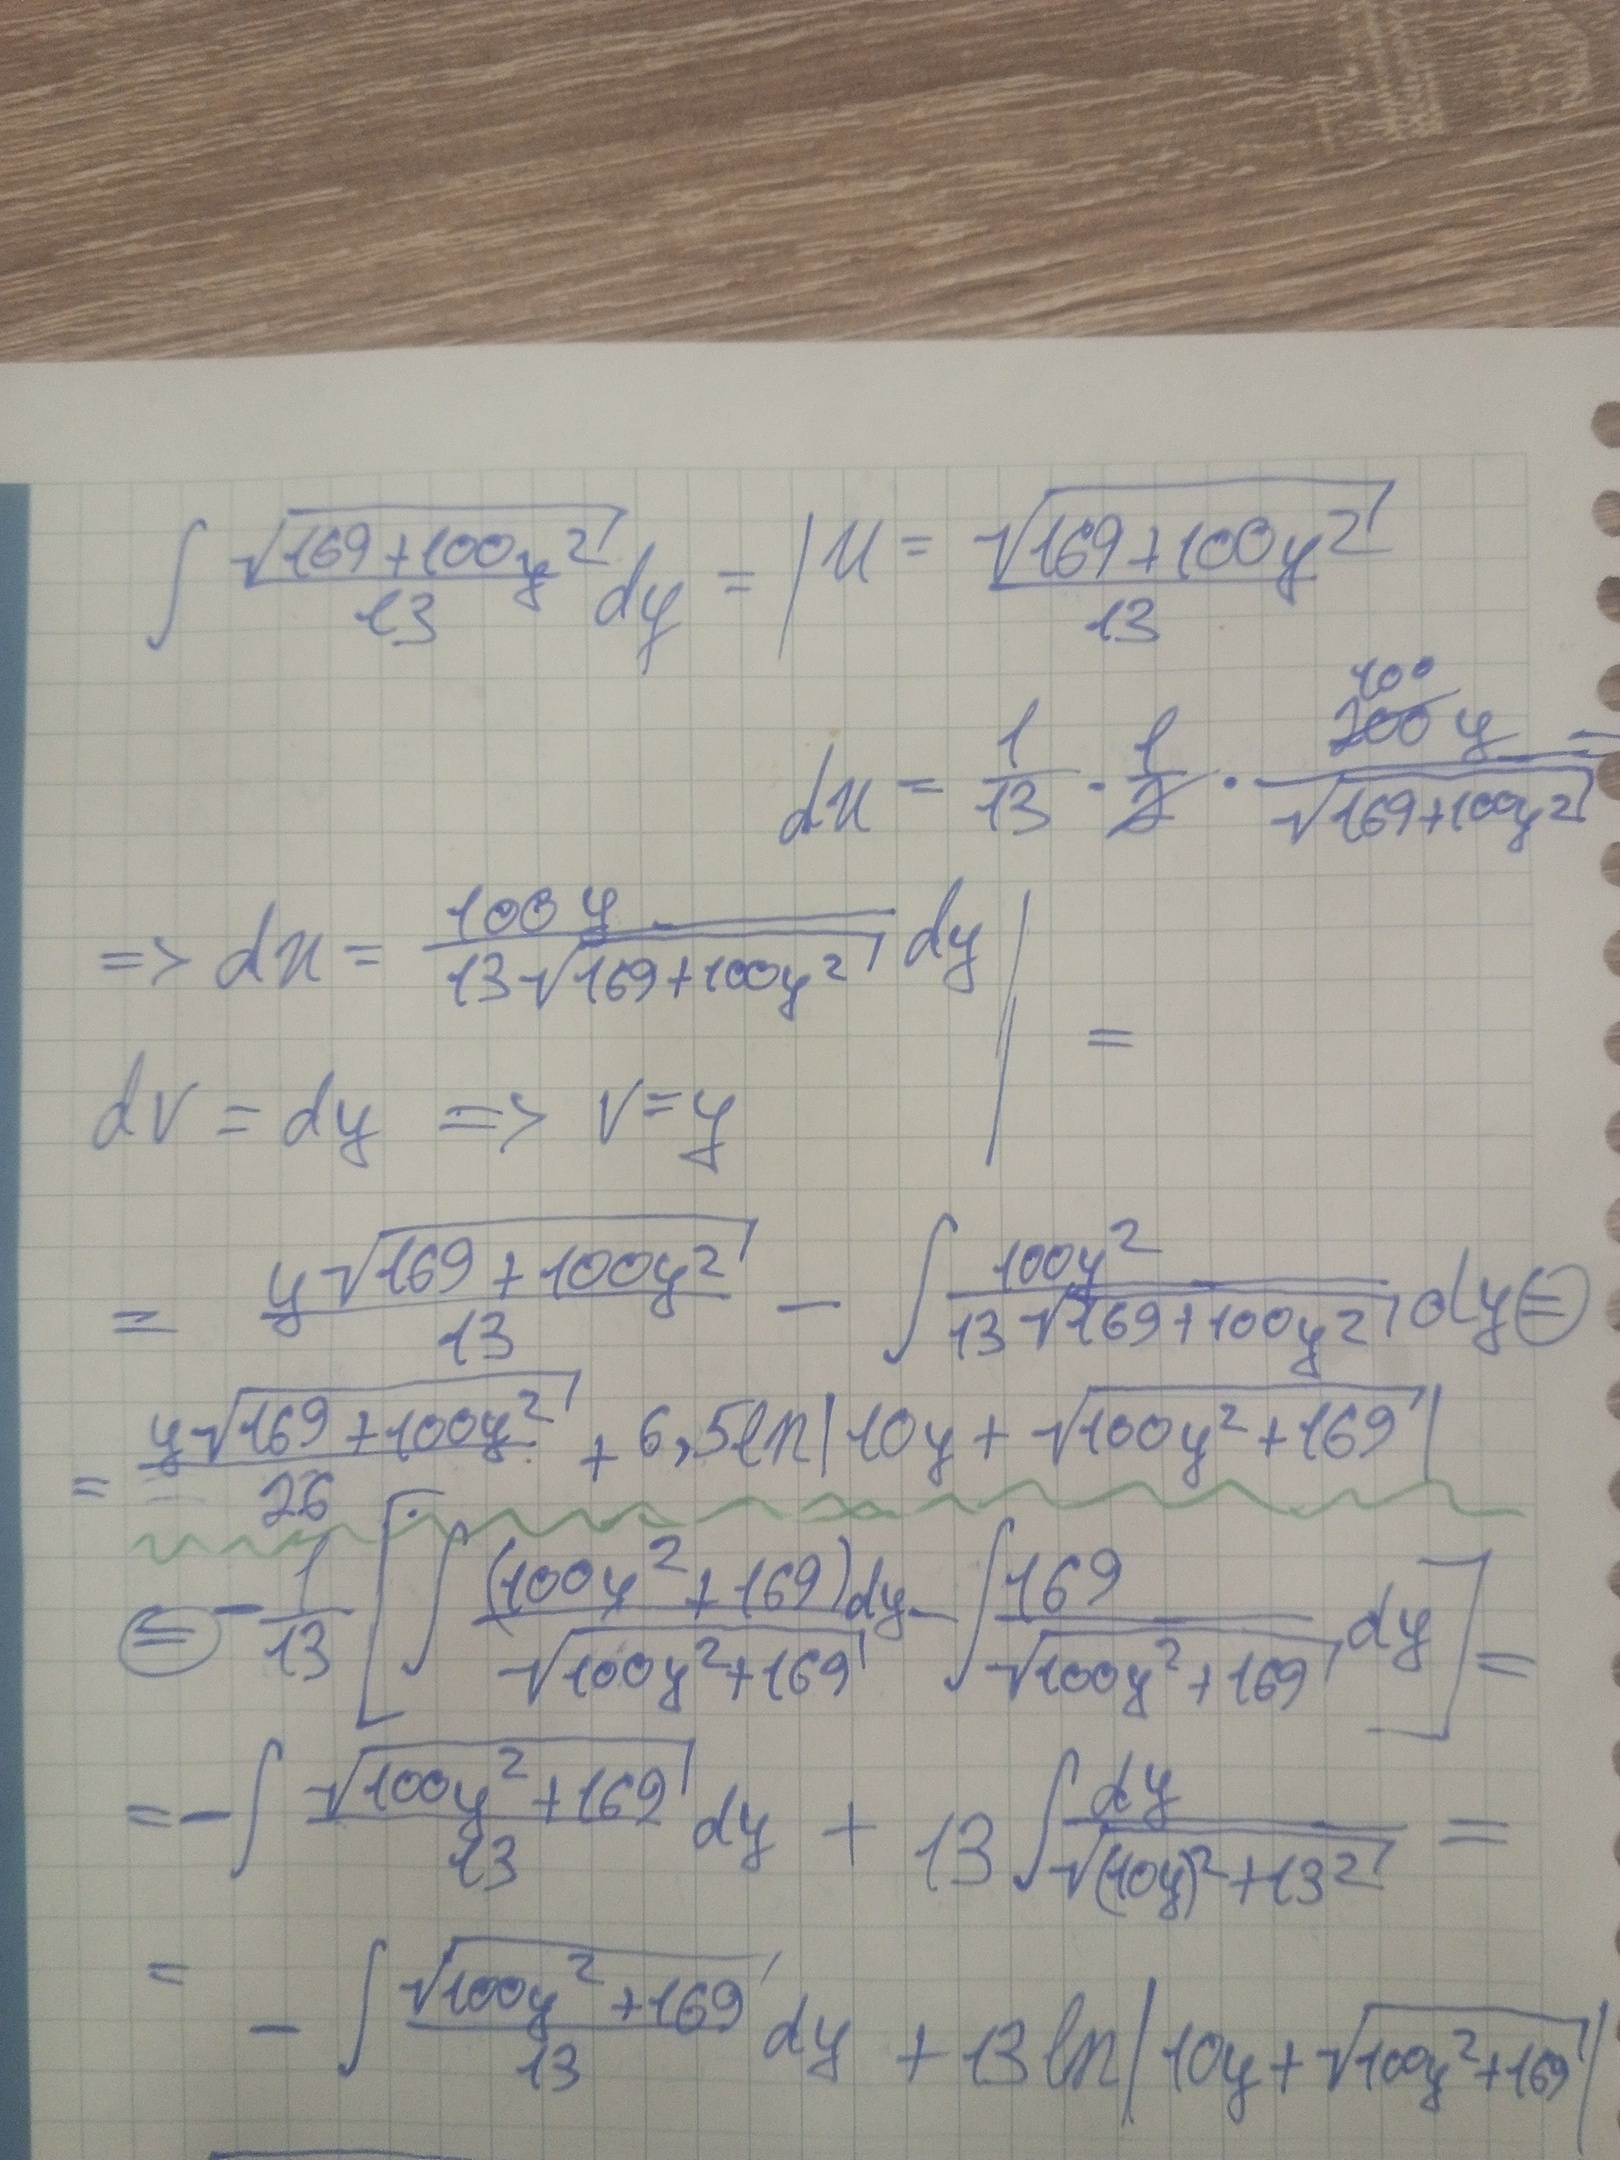 ∫ √(169+100y²)/13 dy = | u = √(169+100y²)/13
du = 1/13 · 1/2 · 200y/√(169+100y²) =
100
=> du = 100y/(13√(169+100y²)) dy | =
dv = dy => v=y
= y√(169+100y²)/13 − ∫ 100y²/(13√(169+100y²)) dy (=)
= y√(169+100y²)/26 + 6,5ln|10y+√(100y²+169)|
(=) −1/13 [ ∫ (100y²+169)dy/√(100y²+169) − ∫ 169/√(100y²+169) dy ] =
= −∫ √(100y²+169)/13 dy + 13 ∫ dy/√((10y)²+13²) =
= −∫ √(100y²+169)/13 dy + 13ln|10y+√(100y²+169)|